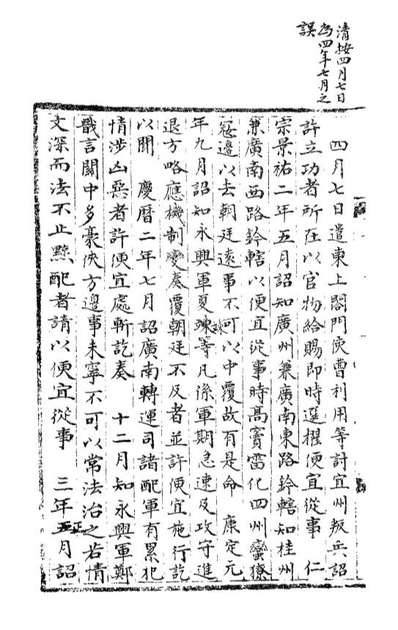 清按四月七日
為四年七月之
誤
四月七日遣東上閤門使曹利用等討宜州叛兵詔
許立功者所在以官物給賜即時遷擢便宜從事　仁
宗景祐二年五月詔知廣州兼廣南東路鈐轄知桂州
兼廣南西路鈐轄以便宜從事時高竇雷化四州蠻獠
寇邊以去朝廷遠事不可以中覆故有是命　康定元
年九月詔知永興軍夏竦等凡係軍期急速及攻守進
退方略應機制變奏覆朝廷不及者並許便宜施行訖
以聞　慶曆二年七月詔廣南轉運司諸配軍有累犯
情涉凶惡者許便宜處斬訖奏　十二月知永興軍鄭
戩言關中多豪俠方邊事未寧不可以常法治之若情
文深而法不止黥配者請以便宜從事　三年五月詔